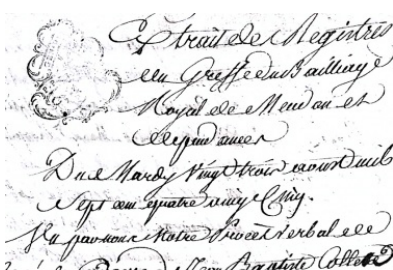 Extrait des Registres
du Greffe du Bailliage
Royal de Meudon et
dependances
Du Mardy Vingt trois aoust mil
Sept cent quatre vingt Cinq.
Vu par nous Notre Procès verbal de
Jean Baptiste